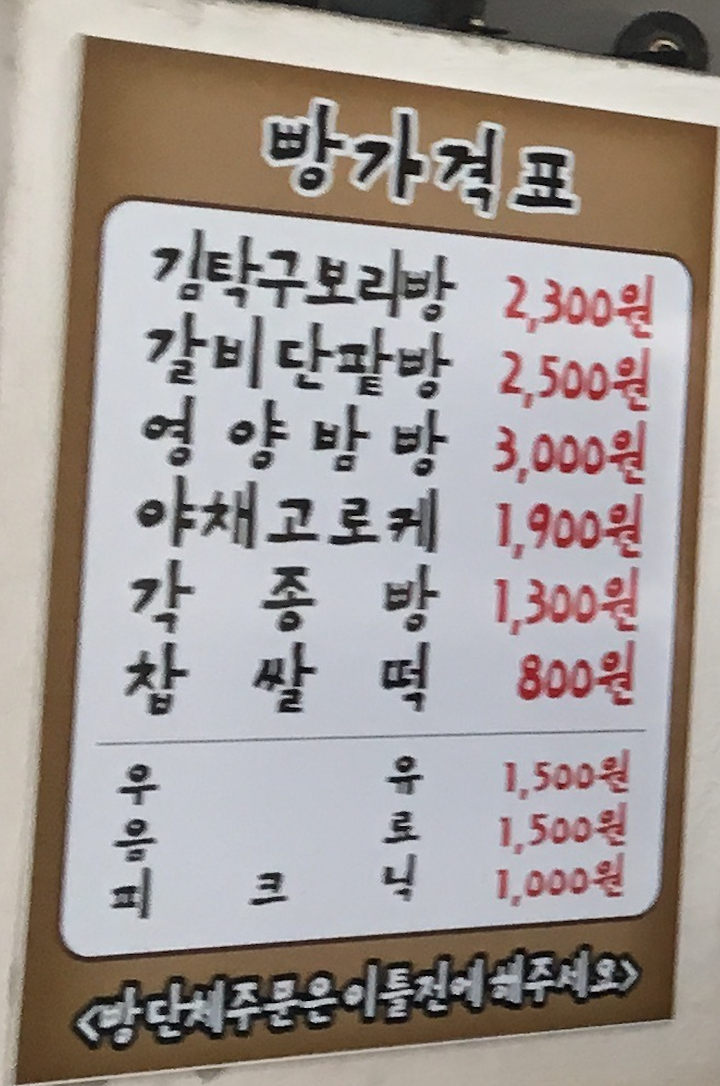 빵가격표
김탁구보리빵 2,300원
갈비단팥빵 2,500원
영양밤빵 3,000원
야채고로케 1,900원
각종빵 1,300원
찹쌀떡 800원
우유 1,500원
음료 1,500원
피크닉 1,000원
<빵단체주문은이틀전에해주세요>